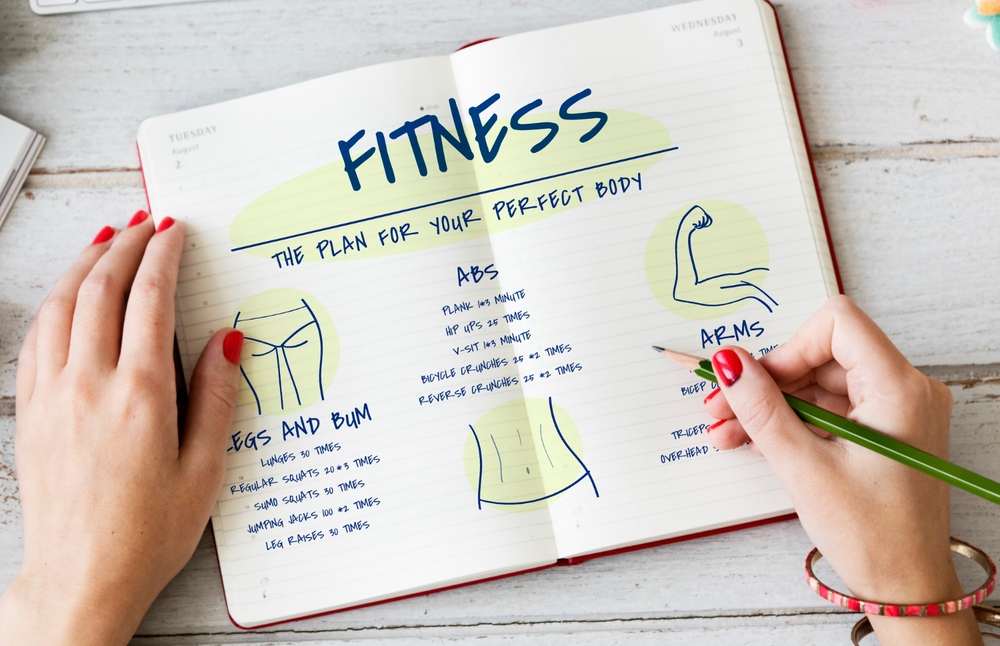 TUESDAY
August
2
WEDNESDAY
August
3
FITNESS
THE PLAN FOR YOUR PERFECT BODY
LEGS AND BUM
LUNGES 30 TIMES
REGULAR SQUATS 20*3 TIMES
SUMO SQUATS 30 TIMES
JUMPING JACKS 100 *2 TIMES
LEG RAISES 30 TIMES
ABS
PLANK 1*3 MINUTE
HIP UPS 25 TIMES
V-SIT 1*3 MINUTE
BICYCLE CRUNCHES 25 *2 TIMES
REVERSE CRUNCHES 25 *2 TIMES
ARMS
BICEP
TRICEPS
OVERHEAD